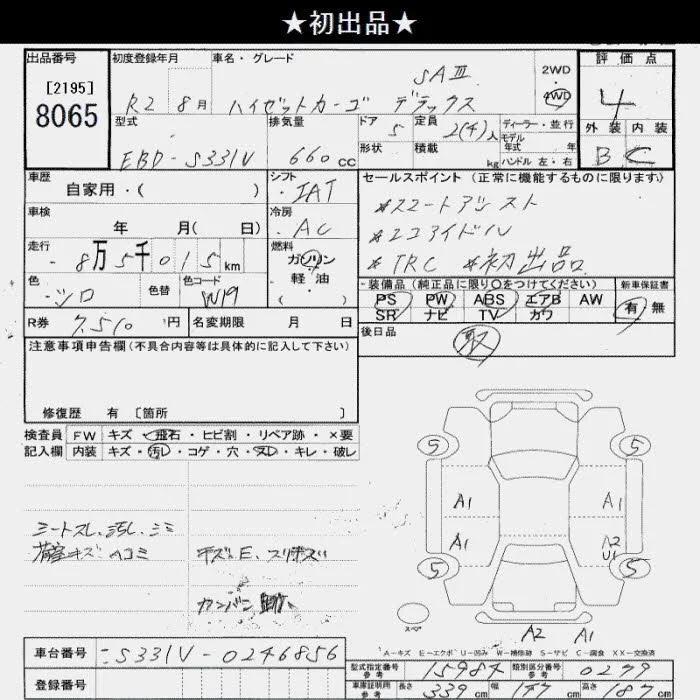 ★初出品★
出品番号 初度登録年月 車名・グレード 評価点
[2195]
8065
R2 8月 ハイゼットカーゴ デラックス SAⅢ
2WD
・
4WD
4
外装 内装
B C
型式 排気量 ドア 定員 ディーラー・並行
EBD-S331V 660cc 5 2(4)人 モデル年式 年
形状 積載 kg ハンドル 左・右
車歴 シフト セールスポイント(正常に機能するものに限ります。)
自家用・( ) IAT
*スマートアシスト
車検 冷房
年 月( 日) AC
*エコアイドル
走行 燃料
8万5千015km ガソリン
軽・油
( ・ )
*TRC *初出品
色 色替 色コード
シロ W19
装備品(純正品に限り○をつけてください) 新車保証書
PS PW ABS エアB AW 有・無
SR ナビ TV カワ
R券 7,510円 名変期限 月 日
後日品
取
注意事項申告欄(不具合内容等は具体的に記入して下さい)
修復歴 有 [箇所 ]
検査員 FW キズ・飛石・ヒビ割・リペア跡・×要
記入欄 内装 キズ・汚レ・コゲ・穴・スレ・キレ・破レ
シートスレ、汚レ、シミ
荷室キズ・ヘコミ キズ、E、スリキズ
カンバン跡
5 5
A1 A1
A1 A2
U1
5 5
スペア
A2 A1
A-キズ E-エクボ U-凹み W-補修跡 S-サビ C-腐食 XX-交換済
車台番号 S331V-0246856
登録番号
型式指定番号 参考 15984 類別区分番号 参考 0279
車庫証明用 参考 長さ 339cm 幅 147cm 高さ 187cm